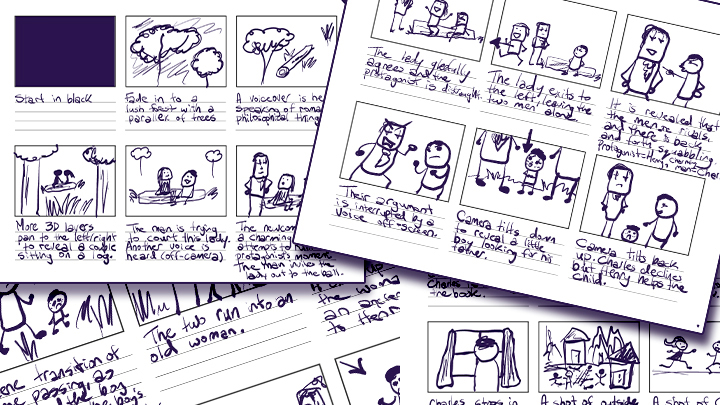 Start in black
Fade in to a
lush forest with a
parallax of trees
A voiceover is he
speaking of roma
philosophical thing
More 3D layers
pan to the left/right
to reveal a couple
sitting on a log.
The man is trying
to court this lady.
Another voice is
heard (off-camera)
The newcom
a charming
attempts to
protagonist's moment.
The man invites the
lady out to the ball.
The lady gleefully
agrees and the
protagonist is distraught.
The lady exits to
the left, leaving the
two men alone.
It is revealed that
the men are rivals
and there is back
and forth squabbling.
Their argument
is interrupted by a
voice off-screen.
Camera tilts down
to reveal a little
boy looking for his
father.
Camera tilts back
up. Charles declines
but Henry helps the
child.
ene transition of
me passing, as
the boy
the boy's
The two run into an
old woman.
up
the woma
an ancien
to Henr
Charles is
the book.
Charles stops in
A shot of outside
A shot of